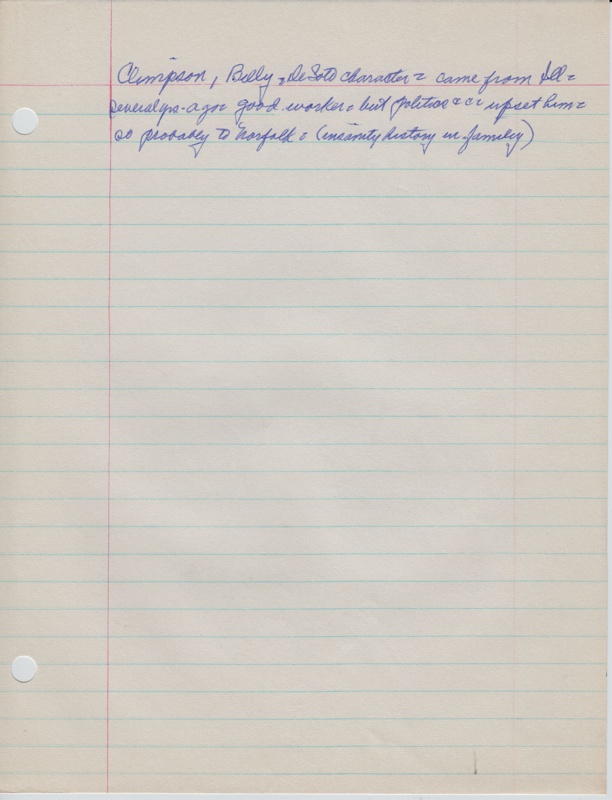 Climpson, Billy = DeSoto character = came from Ill =
several yrs. ago = good worker = but politics &c upset him =
so probably to Norfolk = (insanity history in family)